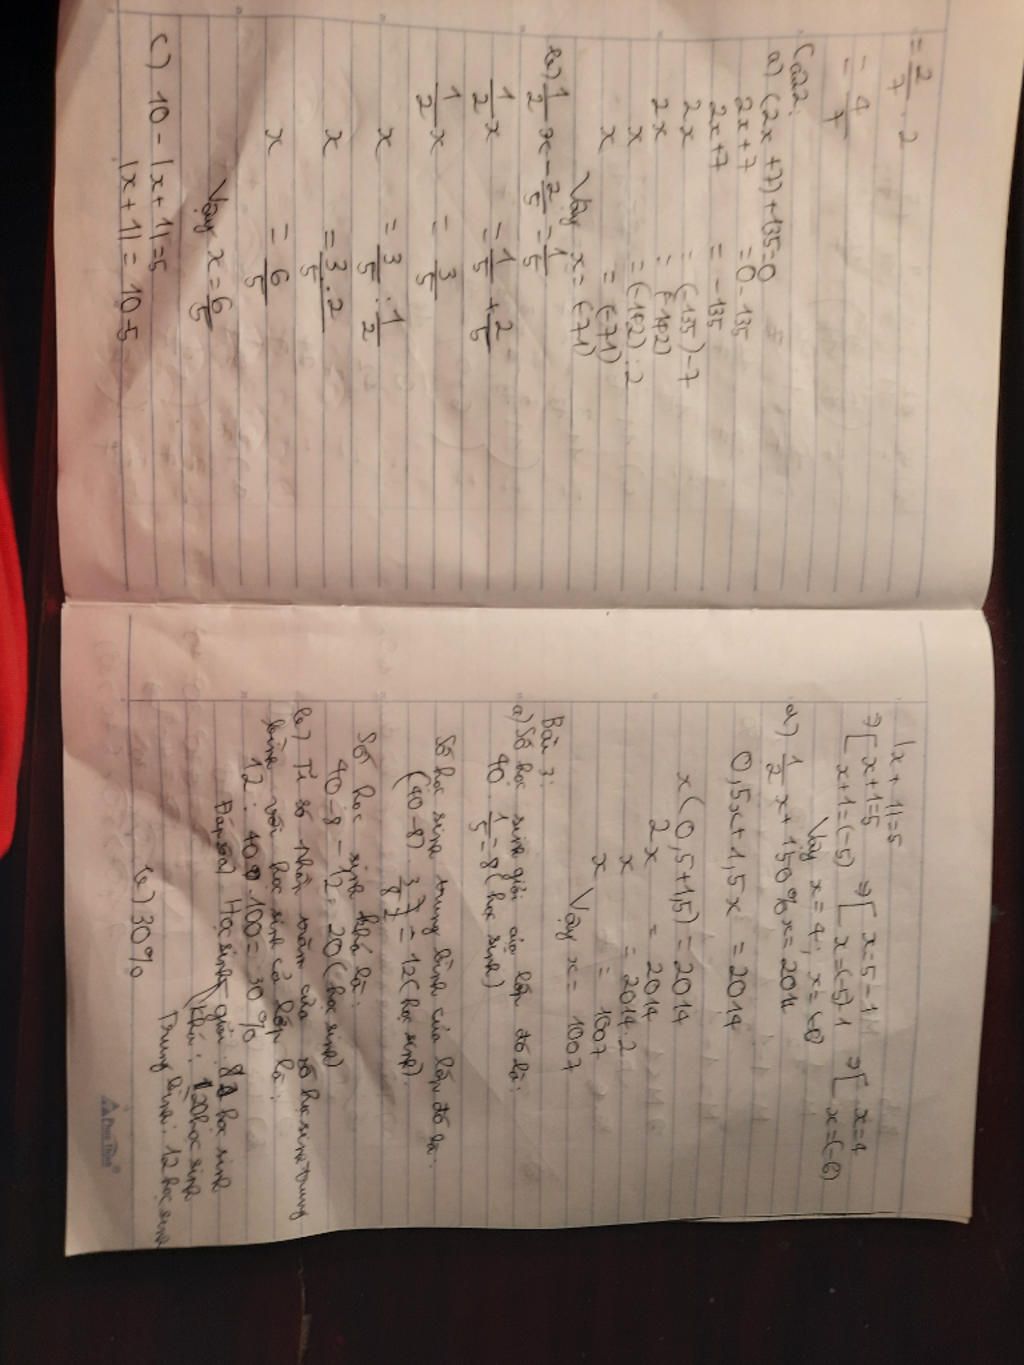 = 2/7 . 2
= 4/7
Câu 2:
a) (2x + 7) + 135 = 0
2x + 7 = 0 - 135
2x + 7 = -135
2x = (-135) - 7
2x = (-142)
x = (-142) : 2
x = (-71)
Vậy x = (-71)
b) 1/2 x - 2/5 = 1/5
1/2 x = 1/5 + 2/5
1/2 x = 3/5
x = 3/5 : 1/2
x = 3/5 . 2
x = 6/5
Vậy x = 6/5
c) 10 - |x + 1| = 5
|x + 1| = 10 - 5
|x + 1| = 5
⇒ [ x + 1 = 5 ⇒ [ x = 5 - 1 ⇒ [ x = 4
x + 1 = (-5) x = (-5) - 1 x = (-6)
Vậy x = 4; x = (-6)
d) 1/2 x + 150% x = 2014
0,5x + 1,5x = 2014
x (0,5 + 1,5) = 2014
2x = 2014
x = 2014 : 2
x = 1007
Vậy x = 1007
Bài 3:
a) Số học sinh giỏi của lớp đó là:
40 . 1/5 = 8 (học sinh)
Số học sinh trung bình của lớp đó là:
(40 - 8) . 3/8 = 12 (học sinh)
Số học sinh khá là:
40 - 8 - 12 = 20 (học sinh)
b) Tỉ số phần trăm của số học sinh trung
bình với học sinh cả lớp là:
12 : 40 . 100 = 30%
Đáp số: a) Học sinh giỏi: 8 học sinh
Khá: 20 học sinh
Trung bình: 12 học sinh
b) 30%